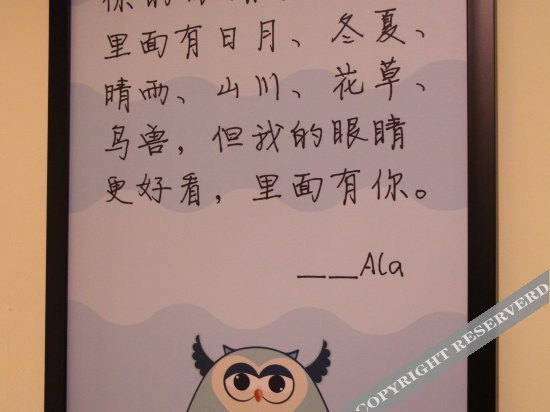 里面有日月、冬夏、
晴雨、山川、花草、
鸟兽，但我的眼睛
更好看，里面有你。
——Ala
COPYRIGHT RESERVERD